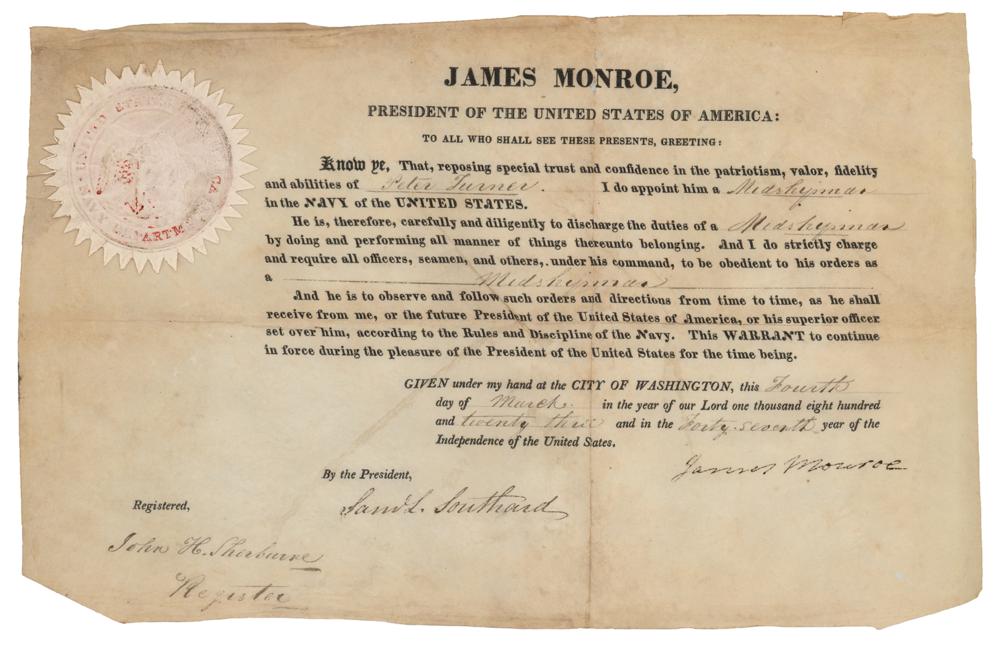 JAMES MONROE,
PRESIDENT OF THE UNITED STATES OF AMERICA:
TO ALL WHO SHALL SEE THESE PRESENTS, GREETING:
Know ye, That, reposing special trust and confidence in the patriotism, valor, fidelity
and abilities of Peter Turner. I do appoint him a Midshipman
in the NAVY of the UNITED STATES.
He is, therefore, carefully and diligently to discharge the duties of a Midshipman
by doing and performing all manner of things thereunto belonging. And I do strictly charge
and require all officers, seamen, and others, under his command, to be obedient to his orders as
a Midshipman
And he is to observe and follow such orders and directions from time to time, as he shall
receive from me, or the future President of the United States of America, or his superior officer
set over him, according to the Rules and Discipline of the Navy. This WARRANT to continue
in force during the pleasure of the President of the United States for the time being.
GIVEN under my hand at the CITY OF WASHINGTON, this Fourth
day of March. in the year of our Lord one thousand eight hundred
and twenty three and in the Forty-seventh year of the
Independence of the United States.
James Monroe
By the President,
Saml. L. Southard
Registered,
John H. Sherburne
Register
UNITED STATES